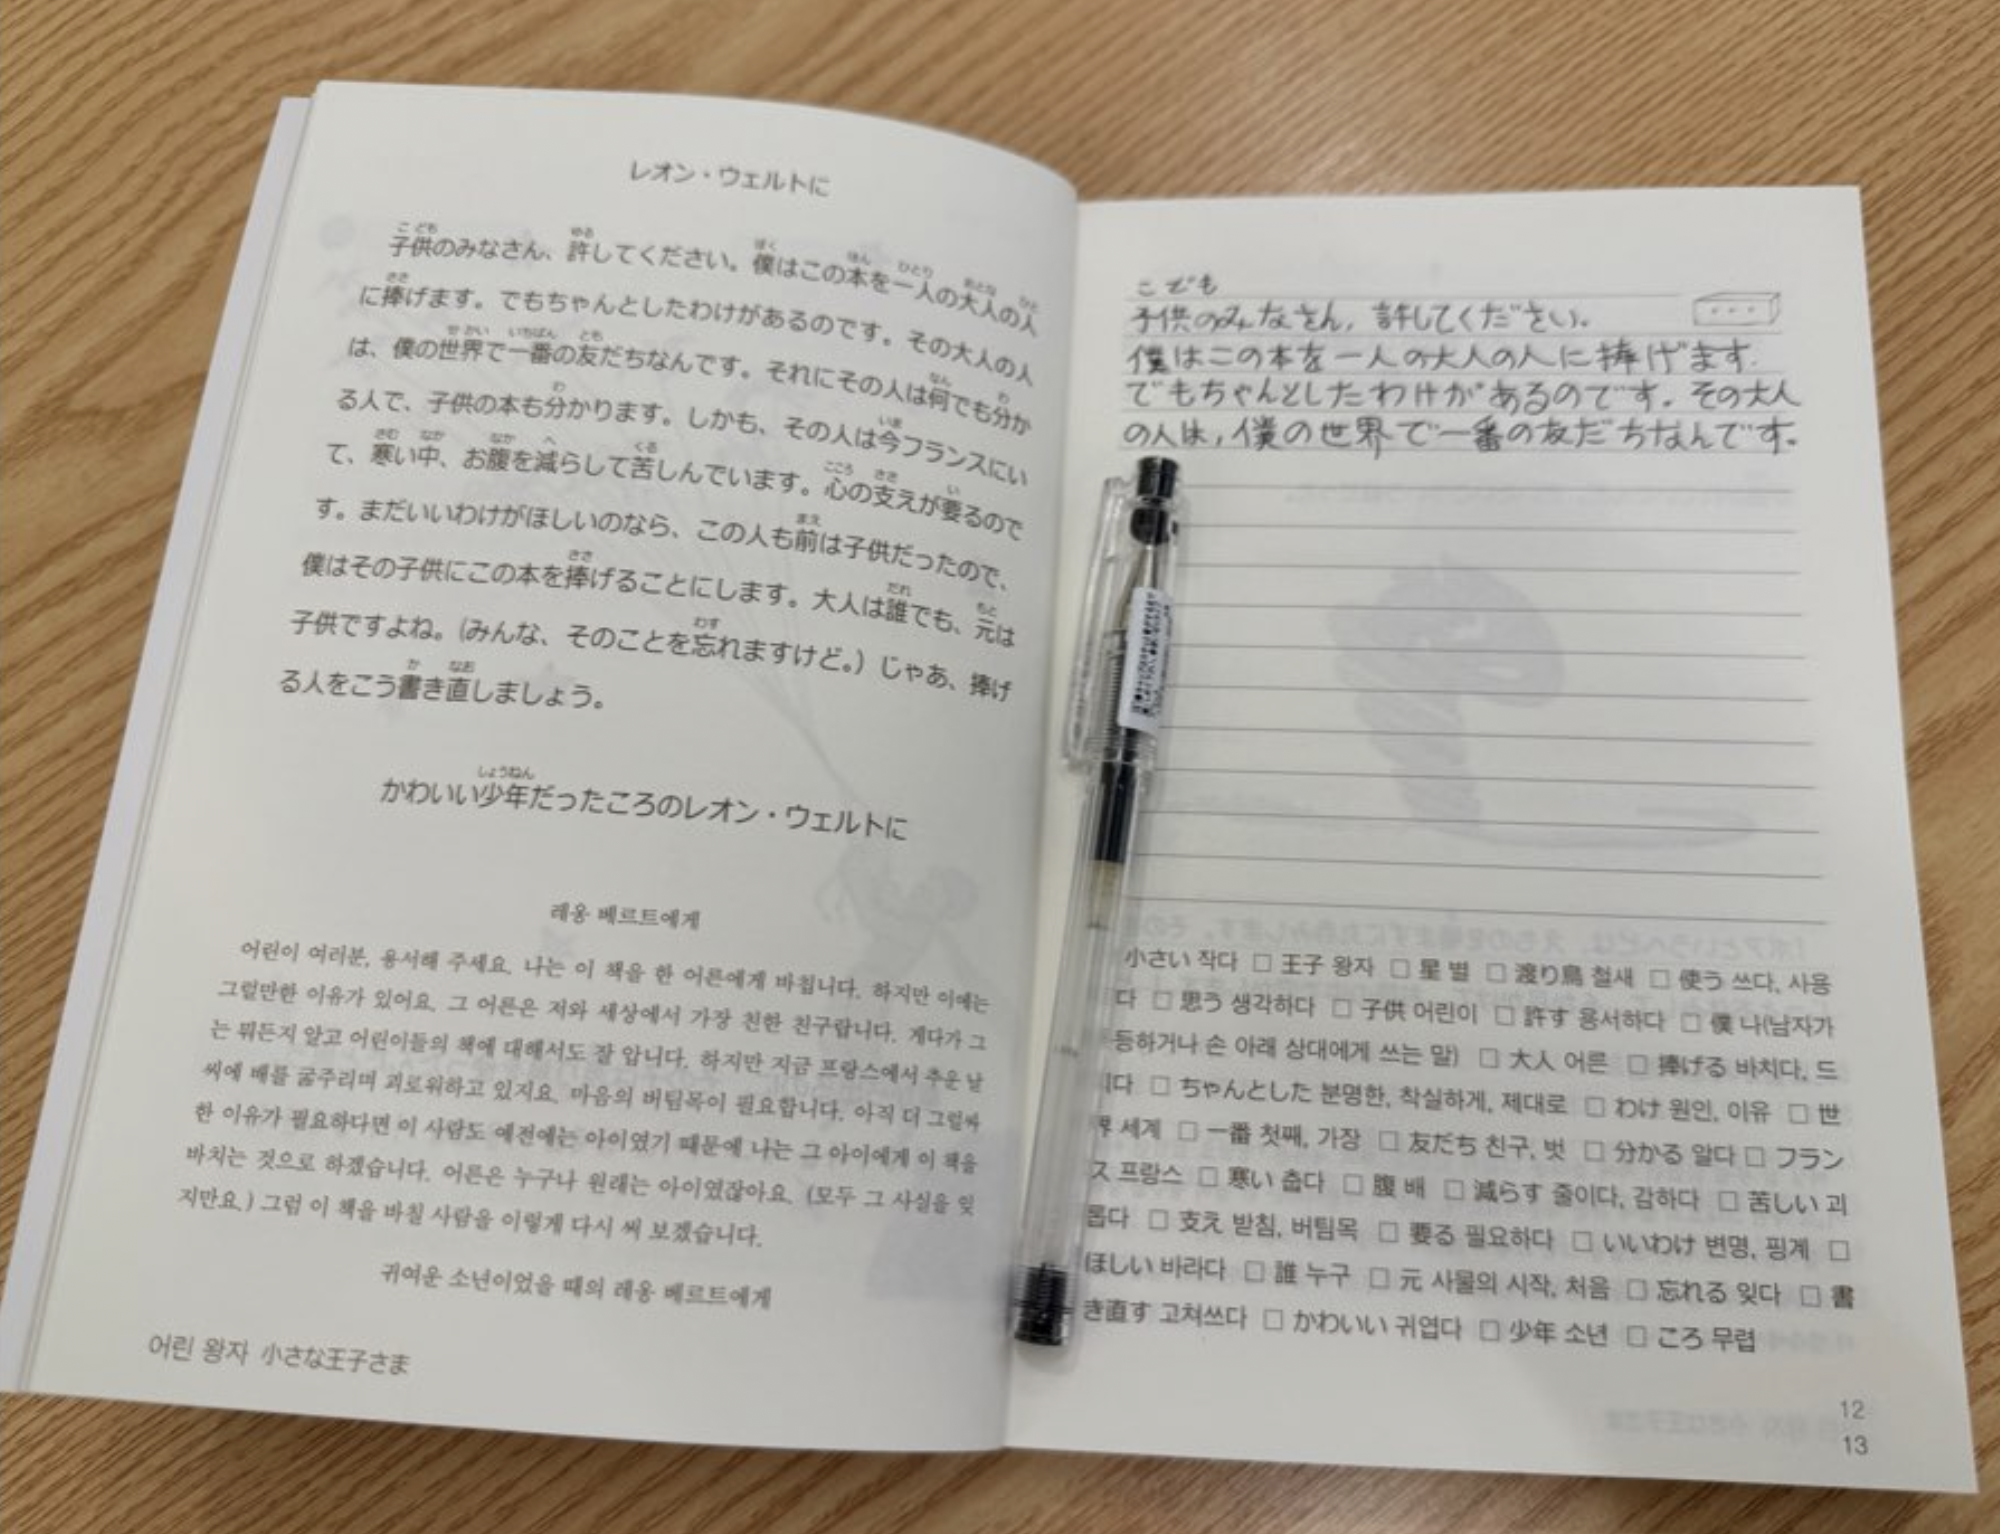 レオン・ウェルトに
子供のみなさん、許してください。僕はこの本を一人の大人の人
に捧げます。でもちゃんとしたわけがあるのです。その大人の人
は、僕の世界で一番の友だちなんです。それにその人は何でも分か
る人で、子供の本も分かります。しかも、その人は今フランスにい
て、寒い中、お腹を減らして苦しんでいます。心の支えが要るので
す。まだいいわけがほしいのなら、この人も前は子供だったので、
僕はその子供にこの本を捧げることにします。大人は誰でも、元は
子供ですよね。(みんな、そのことを忘れますけど。) じゃあ、捧げ
る人をこう書き直しましょう。
かわいい少年だったころのレオン・ウェルトに
레옹 베르트에게
어린이 여러분, 용서해 주세요. 나는 이 책을 한 어른에게 바칩니다. 하지만 이에는
그럴만한 이유가 있어요. 그 어른은 저와 세상에서 가장 친한 친구랍니다. 게다가 그
는 뭐든지 알고 어린이들의 책에 대해서도 잘 압니다. 하지만 지금 프랑스에서 추운 날
씨에 배를 굶주리며 괴로워하고 있지요. 마음의 버팀목이 필요합니다. 아직 더 그럴싸
한 이유가 필요하다면 이 사람도 예전에는 아이였기 때문에 나는 그 아이에게 이 책을
바치는 것으로 하겠습니다. 어른은 누구나 원래는 아이였잖아요. (모두 그 사실을 잊
지만요.) 그럼 이 책을 바칠 사람을 이렇게 다시 써 보겠습니다.
귀여운 소년이었을 때의 레옹 베르트에게
어린 왕자 小さな王子さま
こども
子供のみなさん, 許してください.
僕はこの本を一人の大人の人に捧げます.
でもちゃんとしたわけがあるのです. その大人
の人は, 僕の世界で一番の友だちなんです.
小さい 작다 □ 王子 왕자 □ 星 별 □ 渡り鳥 철새 □ 使う 쓰다, 사용
다 □ 思う 생각하다 □ 子供 어린이 □ 許す 용서하다 □ 僕 나(남자가
등하거나 손 아래 상대에게 쓰는 말) □ 大人 어른 □ 捧げる 바치다, 드
다 □ ちゃんとした 분명한, 착실하게, 제대로 □ わけ 원인, 이유 □ 世
界 세계 □ 一番 첫째, 가장 □ 友だち 친구, 벗 □ 分かる 알다 □ フラン
ス 프랑스 □ 寒い 춥다 □ 腹 배 □ 減らす 줄이다, 감하다 □ 苦しい 괴
롭다 □ 支え 받침, 버팀목 □ 要る 필요하다 □ いいわけ 변명, 핑계 □
ほしい 바라다 □ 誰 누구 □ 元 사물의 시작, 처음 □ 忘れる 잊다 □ 書
き直す 고쳐쓰다 □ かわいい 귀엽다 □ 少年 소년 □ ころ 무렵
12
13